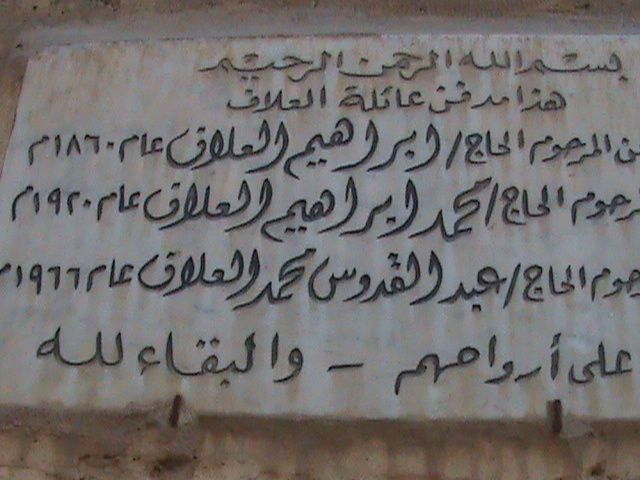 بسم الله الرحمن الرحيم
هذا مدفن عائلة العلاف
المرحوم الحاج / ابراهيم العلاف عام ١٨٦٠م
الحاج / محمد ابراهيم العلاف عام ١٩٢٠م
الحاج / عبد القدوس محمد العلاف عام ١٩٦٦م
على أرواحهم - والبقاء لله